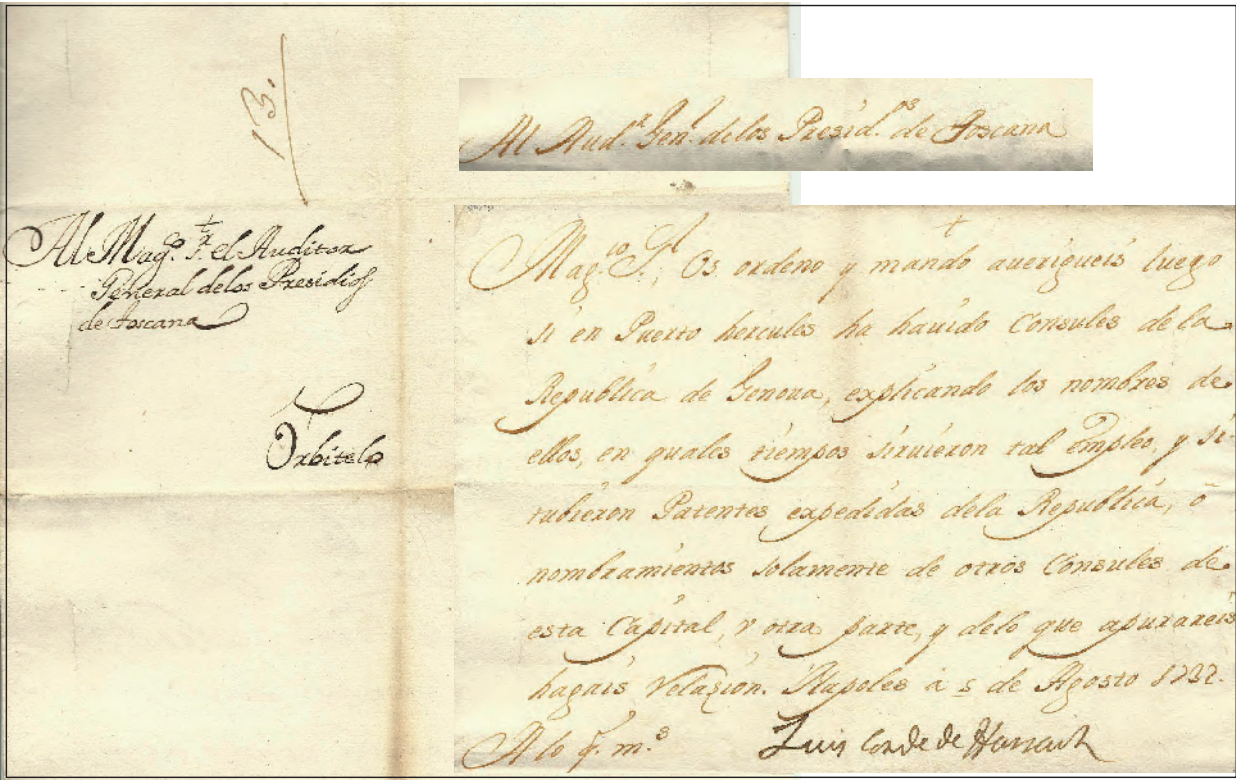 13.
Al Aud.r Gen.l delos Presid.os de Toscana
Al Mag.co S.r el Auditor
General delos Presidios
de Toscana
Orbitelo
Mag.co S.r, Os ordeno y mando averigueis luego
si en Puerto hercules ha havido Consules de la
Republica de Genova, explicando los nombres de
ellos, en quales tiempos sirvieron tal empleo, y si
tubieron Patentes expedidas dela Republica, ô
nombramientos solamente de otros Consules de
esta Capital, v otra parte, y delo que apurareis
hagais Relazion. Napoles à 5 de Agosto 1732.
A lo q. m.s
Luis Conde de Harrach